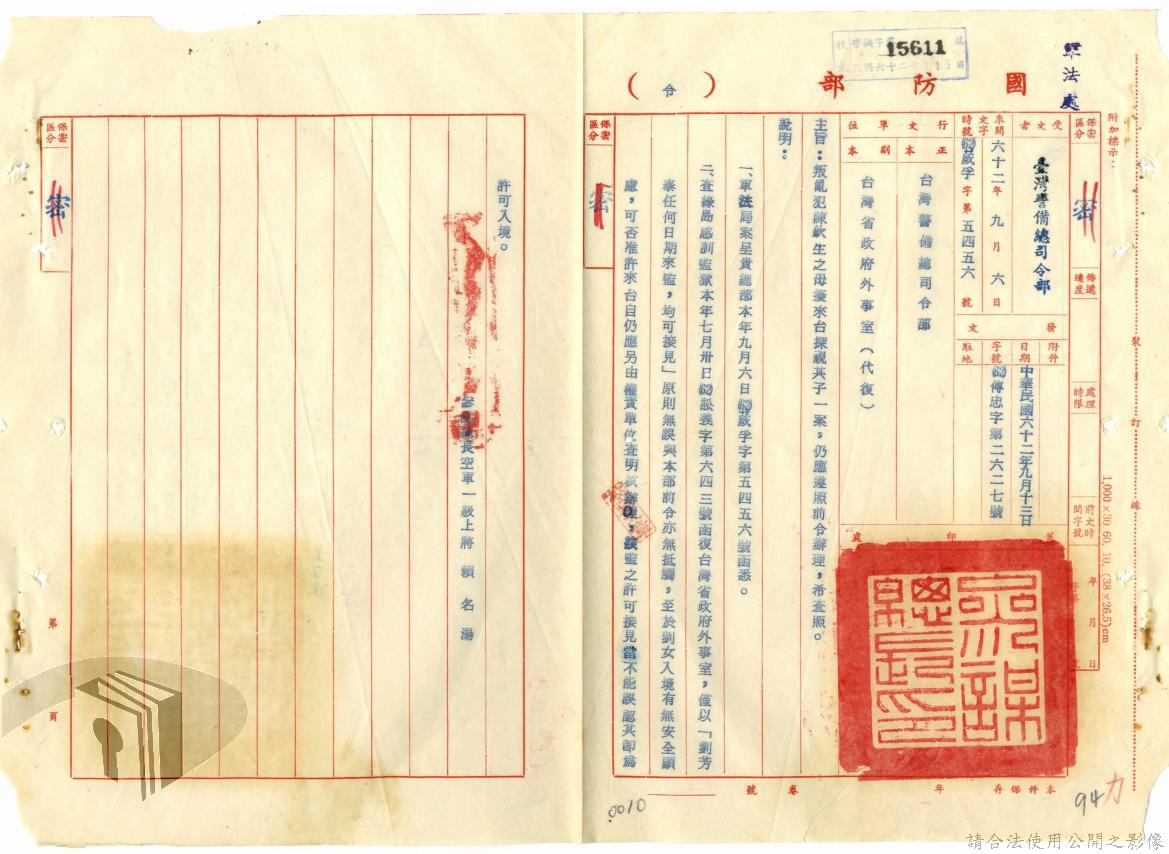 軍法處
15611
國防部
（令）
附加標示：
保密區分
密
傳遞速度
處理時限
前文時間字號
年月日
字第號
受文者
臺灣警備總司令部
來文時間字號
六十二年九月六日
(62)葳孚字第五四五六號
行文單位
正本
台灣警備總司令部
副本
台灣省政府外事室（代復）
發文
附件
日期
中華民國六十二年九月十三日
字號
(62)傳忠字第二六二七號
駐地
蓋印處
參謀總長印
主旨：叛亂犯陳欽生之母擬來台探視其子一案，仍應遵照前令辦理，希查照。
說明：
一、軍法局案呈貴總部本年九月六日(62)葳孚字第五四五六號函悉。
二、查綠島感訓監獄本年七月卅日(62)訟義字第六四三號函復台灣省政府外事室，僅以「劉芳
泰任何日期來監，均可接見」原則無誤與本部前令亦無抵觸，至於劉女入境有無安全顧
慮，可否准許來台自仍應另由權責單位查明核辦。該監之許可接見當不能誤認其即為
保密區分
密
許可入境。
參謀總長空軍一級上將賴名湯
保密區分
密
第頁
裝訂線
1,000×30 60. 10. (38×26.5)cm
本件保存年
卷號
0010
94
請合法使用公開之影像